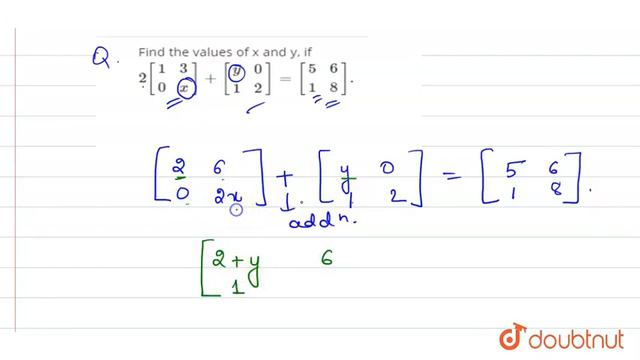 Q. Find the values of x and y, if
2[1 3 0 x] + [y 0 1 2] = [5 6 1 8].
[2 6 0 2x] + [y 0 1 2] = [5 6 1 8].
addn.
[2+y 6
1
doubtnut